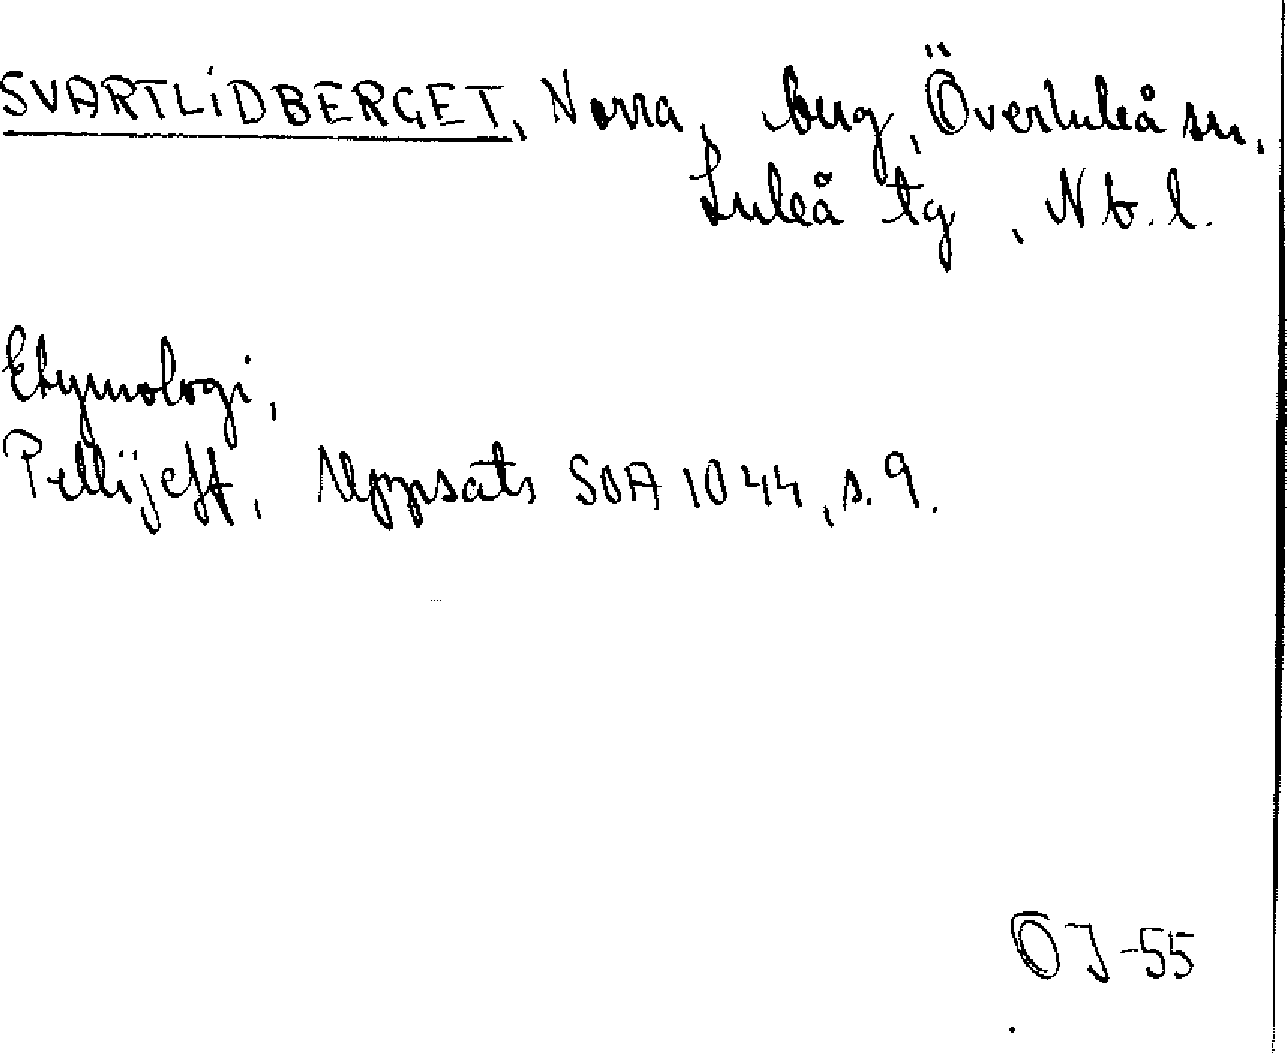 SVARTLIDBERGET, Norra, bug, Överluleå sn,
Luleå tg, Nb.l.
Etymologi,
Pellijeff, Uppsats SOA 1044, s. 9.
OJ-55